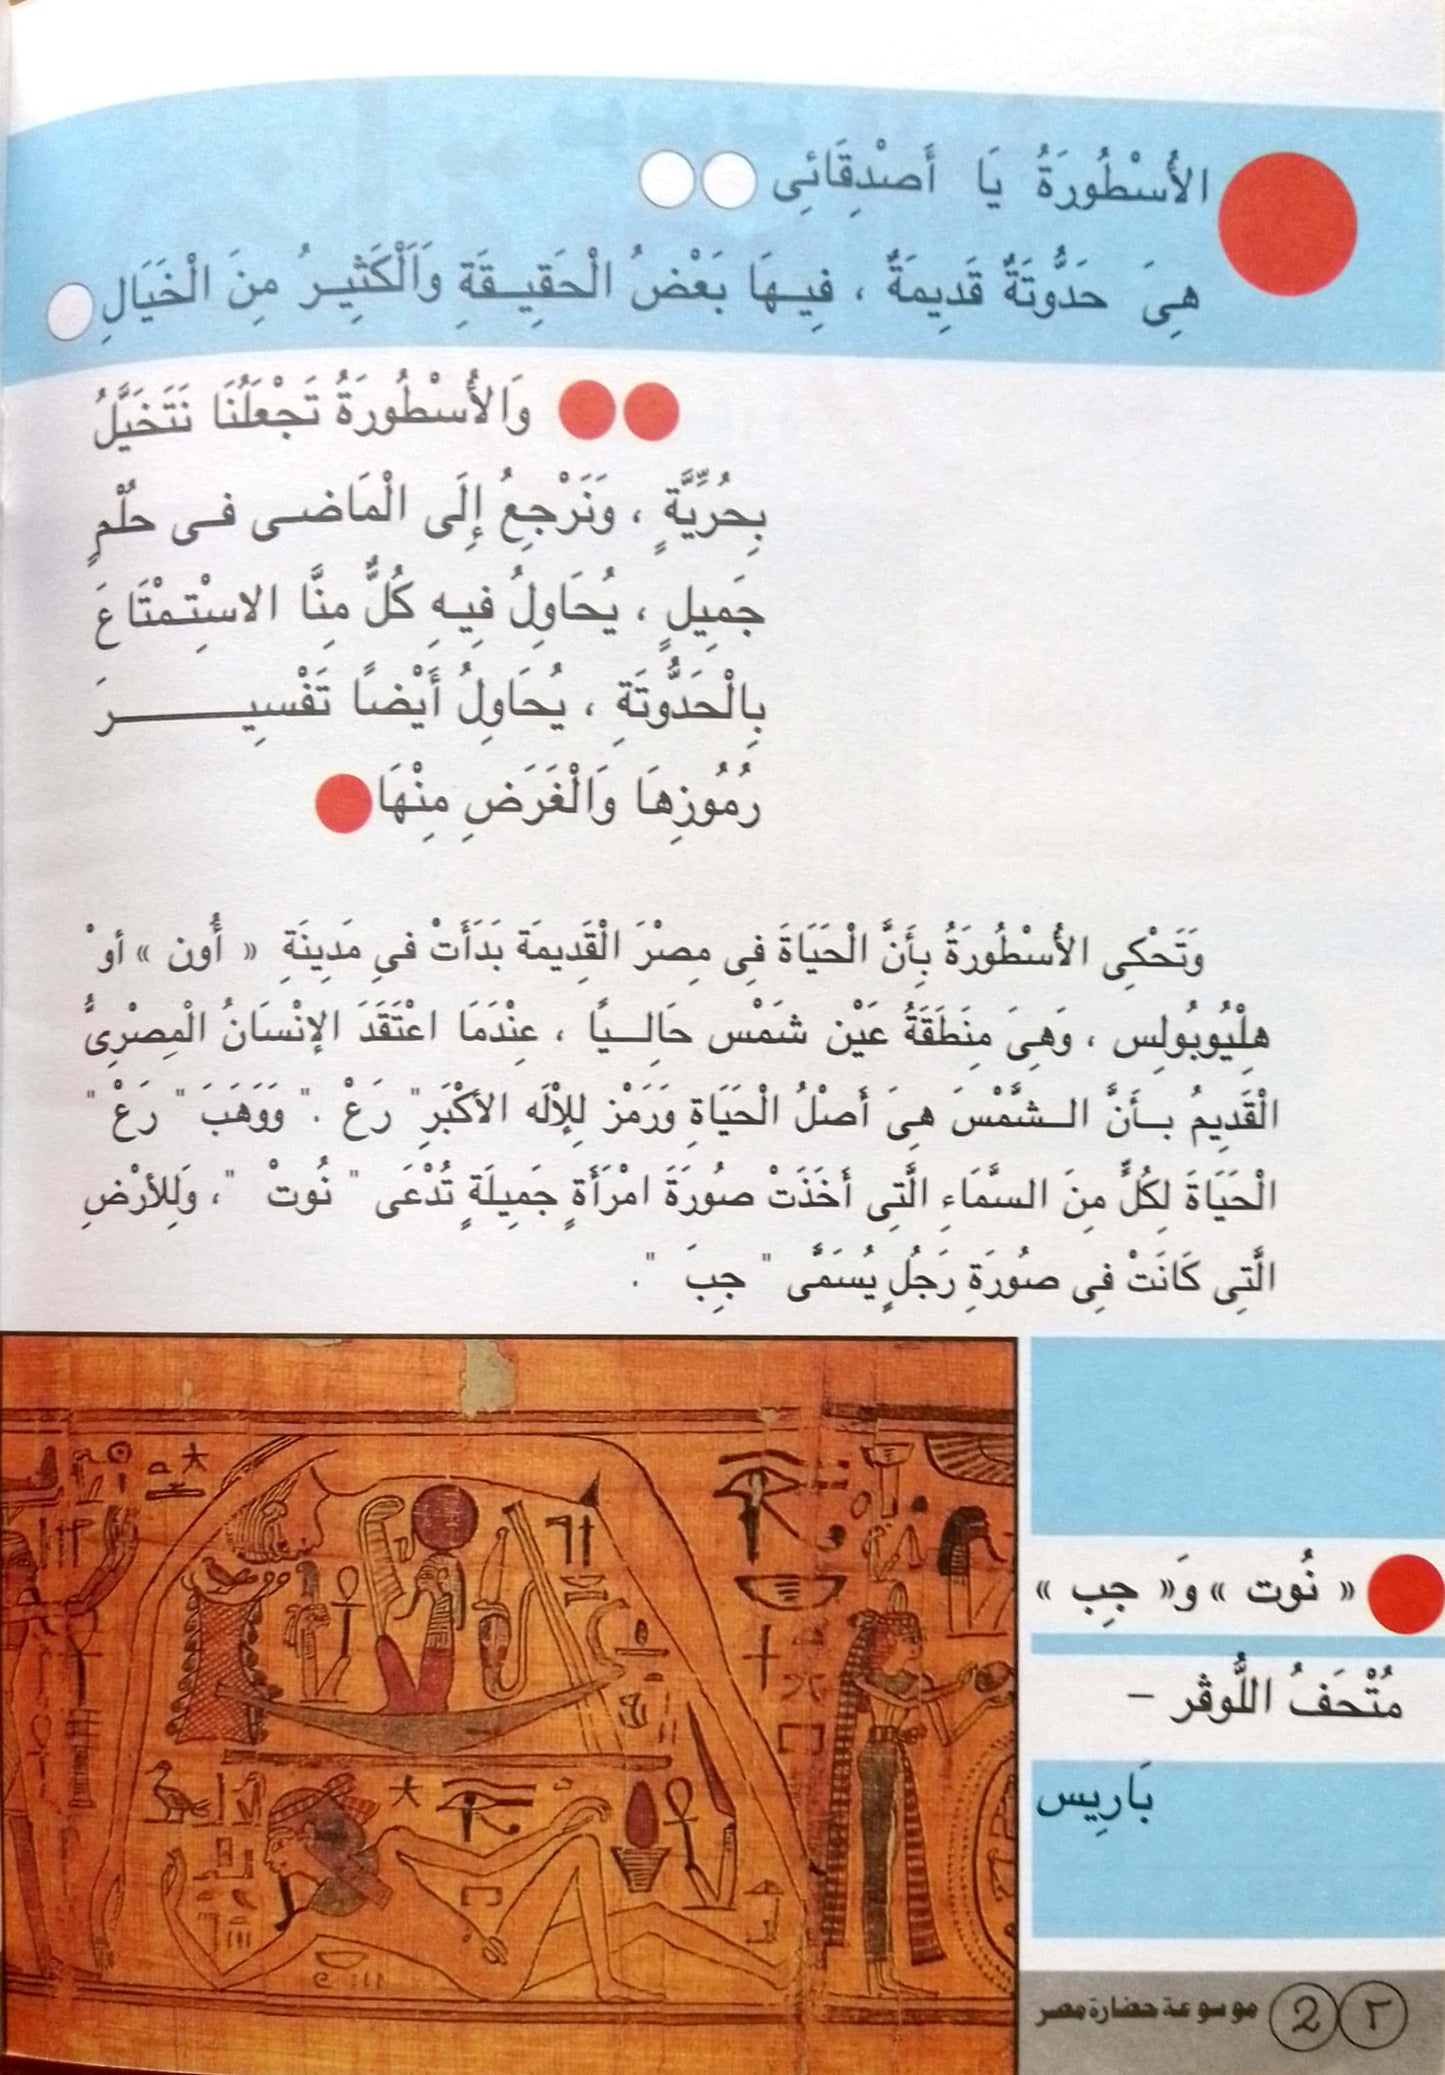 الأُسْطُورَةُ يَا أَصْدِقَائِى
هِىَ حَدُّوتَةٌ قَدِيمَةٌ ، فِيهَا بَعْضُ الْحَقِيقَةِ وَالْكَثِيرُ مِنَ الْخَيَالِ
وَالأُسْطُورَةُ تَجْعَلُنَا نَتَخَيَّلُ
بِحُرِّيَّةٍ ، وَنَرْجِعُ إِلَى الْمَاضى فى حُلْمٍ
جَمِيلٍ ، يُحَاوِلُ فِيهِ كُلٌّ مِنَّا الاسْتِمْتَاعَ
بِالْحَدُّوتَةِ ، يُحَاوِلُ أَيْضاً تَفْسِيرَ
رُمُوزِهَا وَالْغَرَضِ مِنْهَا
وَتَحْكِى الأُسْطُورَةُ بِأَنَّ الْحَيَاةَ فِى مِصْرَ الْقَدِيمَة بَدَأَتْ فىِ مَدِينَةِ « أُون » أوْ
هِلْيُوبُولِس ، وَهِىَ مِنَطَقَةُ عَيْن شَمْس حَالِيًا ، عِنْدَمَا اعْتَقَدَ الإنْسَانُ الْمِصْرِىُّ
الْقَدِيمُ بأَنَّ الشَّمْسَ هِىَ أَصْلُ الْحَيَاةِ وَرَمْز لِلإلَه الأكْبَرِ " رَعْ . " وَوَهَبَ " رَعْ "
الْحَيَاةَ لِكُلٍّ مِنَ السَّمَاءِ الَّتِى أَخَذَتْ صُورَةَ امْرَأَةٍ جَمِيلَةٍ تُدْعَى " نُوتْ " ، وَلِلأرْضِ
الَّتِى كَانَتْ فِى صُورَةِ رَجُلٍ يُسَمَّى " جِبَ " .
« نُوت » وَ« جِب »
مُتْحَفُ اللُّوڤر –
بَارِيس
موسوعة حضارة مصر 2 ٢